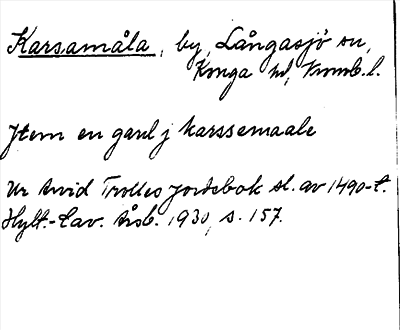 Karsamåla, by, Långasjö sn,
Konga hd, Kronob. l.
Jtem en gard j karssemaale
Ur Arvid Trolles jordebok sl. av 1490-t.
Hylt.-Cav. Årsb. 1930, s. 157.